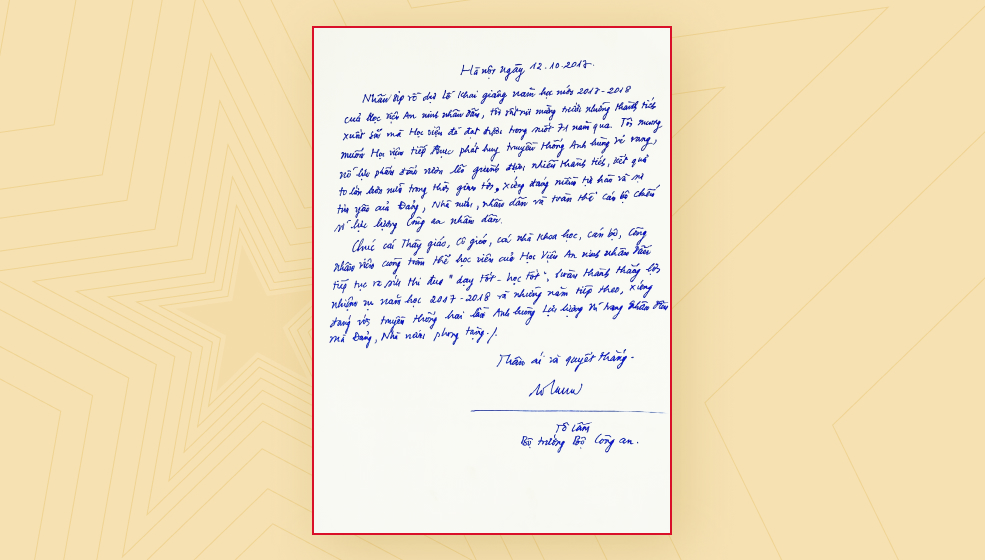 Hà nội ngày 12.10.2017.
Nhân dịp về dự Lễ Khai giảng năm học mới 2017-2018
của Học viện An ninh nhân dân, tôi rất vui mừng trước những thành tích
xuất sắc mà Học viện đã đạt được trong suốt 71 năm qua. Tôi mong
muốn Học viện tiếp tục phát huy truyền thống Anh hùng vẻ vang,
nỗ lực phấn đấu vươn lên giành được nhiều thành tích, kết quả
to lớn hơn nữa trong thời gian tới, xứng đáng niềm tự hào và sự
tin yêu của Đảng, Nhà nước, nhân dân và toàn thể cán bộ chiến
sĩ lực lượng Công an nhân dân.
Chúc các Thầy giáo, Cô giáo, các nhà khoa học, cán bộ, Công
nhân viên cùng toàn thể học viên của Học viện An ninh nhân dân
tiếp tục ra sức thi đua "dạy tốt - học tốt", hoàn thành thắng lợi
nhiệm vụ năm học 2017-2018 và những năm tiếp theo, xứng
đáng với truyền thống hai lần Anh hùng Lực lượng Vũ trang Nhân dân
mà Đảng, Nhà nước phong tặng./.
Thân ái và quyết thắng.
Tô Lâm
Bộ trưởng Bộ Công an.